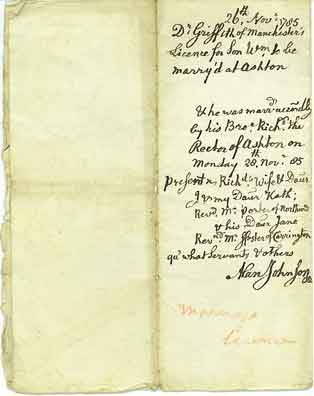 26th Novr 1785
Dr Griffith of Manchester's
Licence for Son Wm to be
marry'd at Ashton
& he was marrd accordly
by his Bror Richd the
Rector of Ashton on
Monday 28th Novr 85
Present Richds Wife & Daur
& my Daur Kath;
Revd Mr Porter of
& his Daur Jane
Revd Mr ffoster of Carrington
qu what Servants & others
Alan Johnson
Marriage
Licence